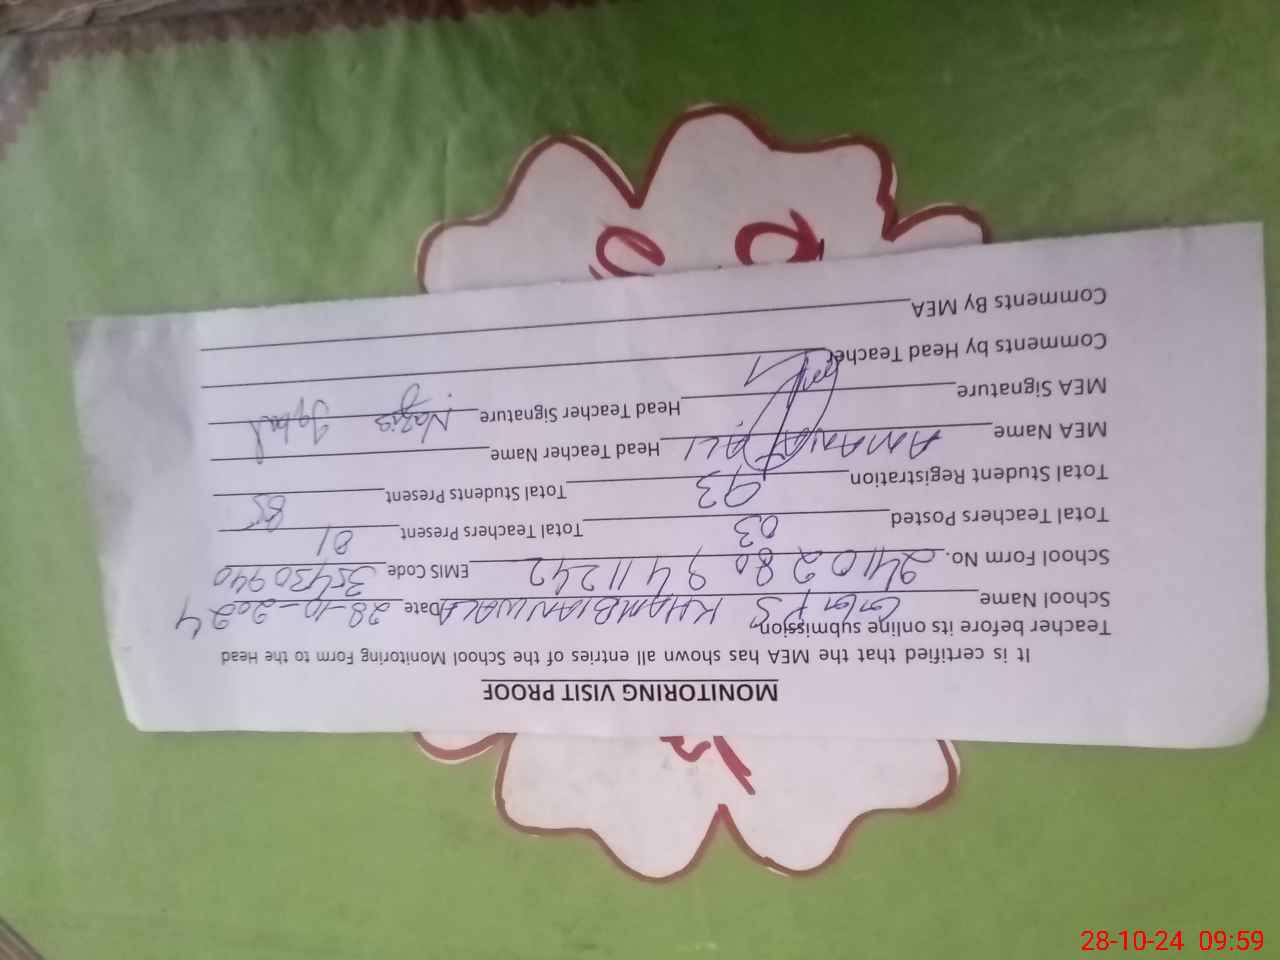 MONITORING VISIT PROOF
It is certified that the MEA has shown all entries of the School Monitoring Form to the Head
Teacher before its online submission
School Name GGPS KHAMBIANWALA Date 28-10-2024
School Form No. 2410280 9411242 EMIS Code 35430940
Total Teachers Posted 03 Total Teachers Present 01
Total Student Registration 93 Total Students Present 85
MEA Name AMANAT ALI Head Teacher Name
MEA Signature Head Teacher Signature Nazia Iqbal
Comments by Head Teacher
Comments By MEA
28-10-24 09:59